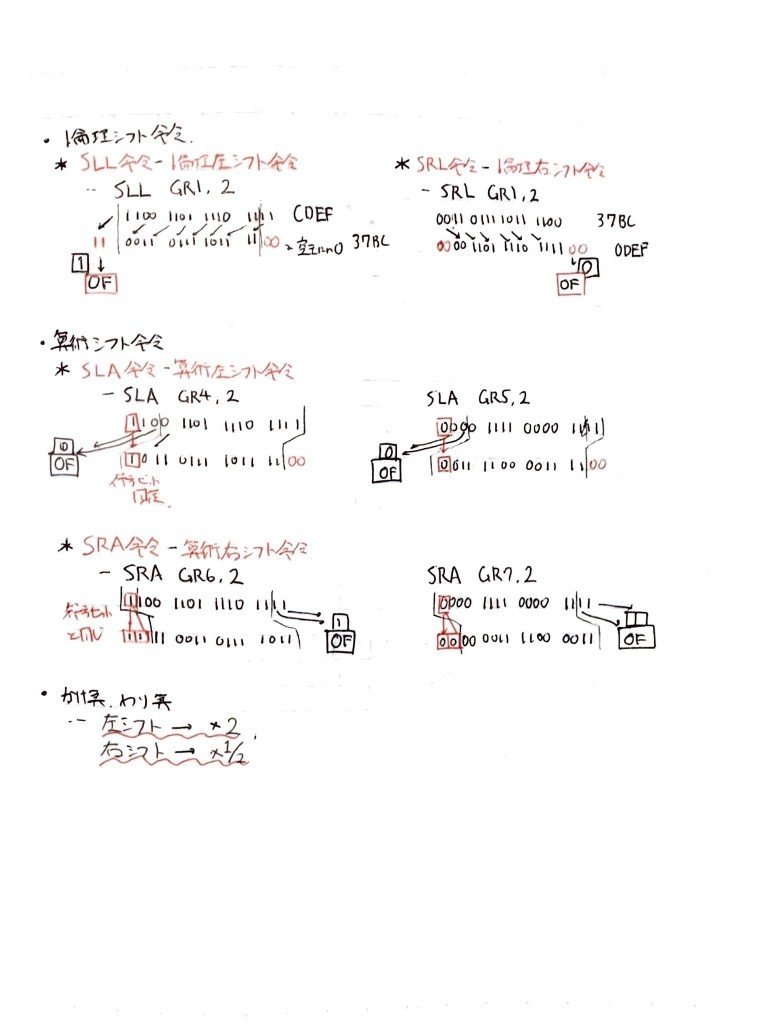 ・論理シフト命令.
* SLL命令-論理左シフト命令
- SLL GR1, 2
1100 1101 1110 1111 CDEF
11 0011 0111 1011 1100 37BC
1
OF
* SRL命令-論理右シフト命令
- SRL GR1, 2
0011 0111 1011 1100 37BC
0000 1101 1110 1111 00 0DEF
0
OF
・算術シフト命令
* SLA命令-算術左シフト命令
- SLA GR4, 2
1100 1101 1110 1111
0
OF
1011 0111 1011 1100
符号ビット
固定
SLA GR5, 2
0000 1111 0000 1111
0
OF
0011 1100 0011 1100
* SRA命令-算術右シフト命令
- SRA GR6, 2
1100 1101 1110 1111
符号ビット
と同じ
1111 0011 0111 1011
1
OF
SRA GR7, 2
0000 1111 0000 1111
0000 0011 1100 0011
1
OF
・かけ算、わり算
- 左シフト → ×2
右シフト → ×1/2